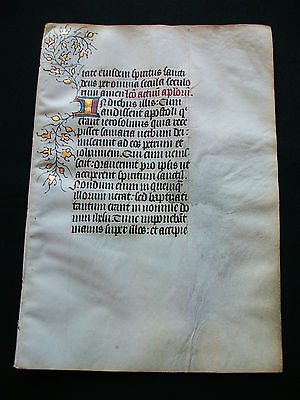 tate eiusdem spiritus sancti
deus per omnia secula seculo
rum amen lco actuũ aplorũ
In diebus illis: Cum
audissent apostoli q̃
erant ierosolimis quia rece
pisset samaria uerbum dei:
miserunt ad eos petrum et
iohannem. Qui cum uenis
sent: orauerunt pro ipsis ut
acciperent spiritum sanctũ.
Nondum enim in quemq̃
illorum uenerat: sed baptizati
tantum erant in nomine do
mini ihesu. Tunc imponebãt
manus super illos: et accipie